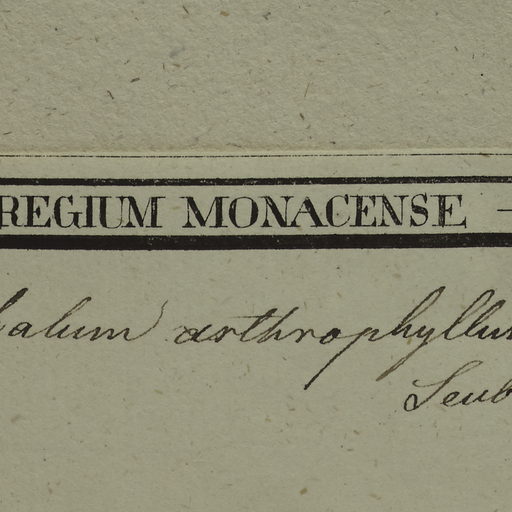 REGIUM MONACENSE —
alum arthrophyllu
Seub